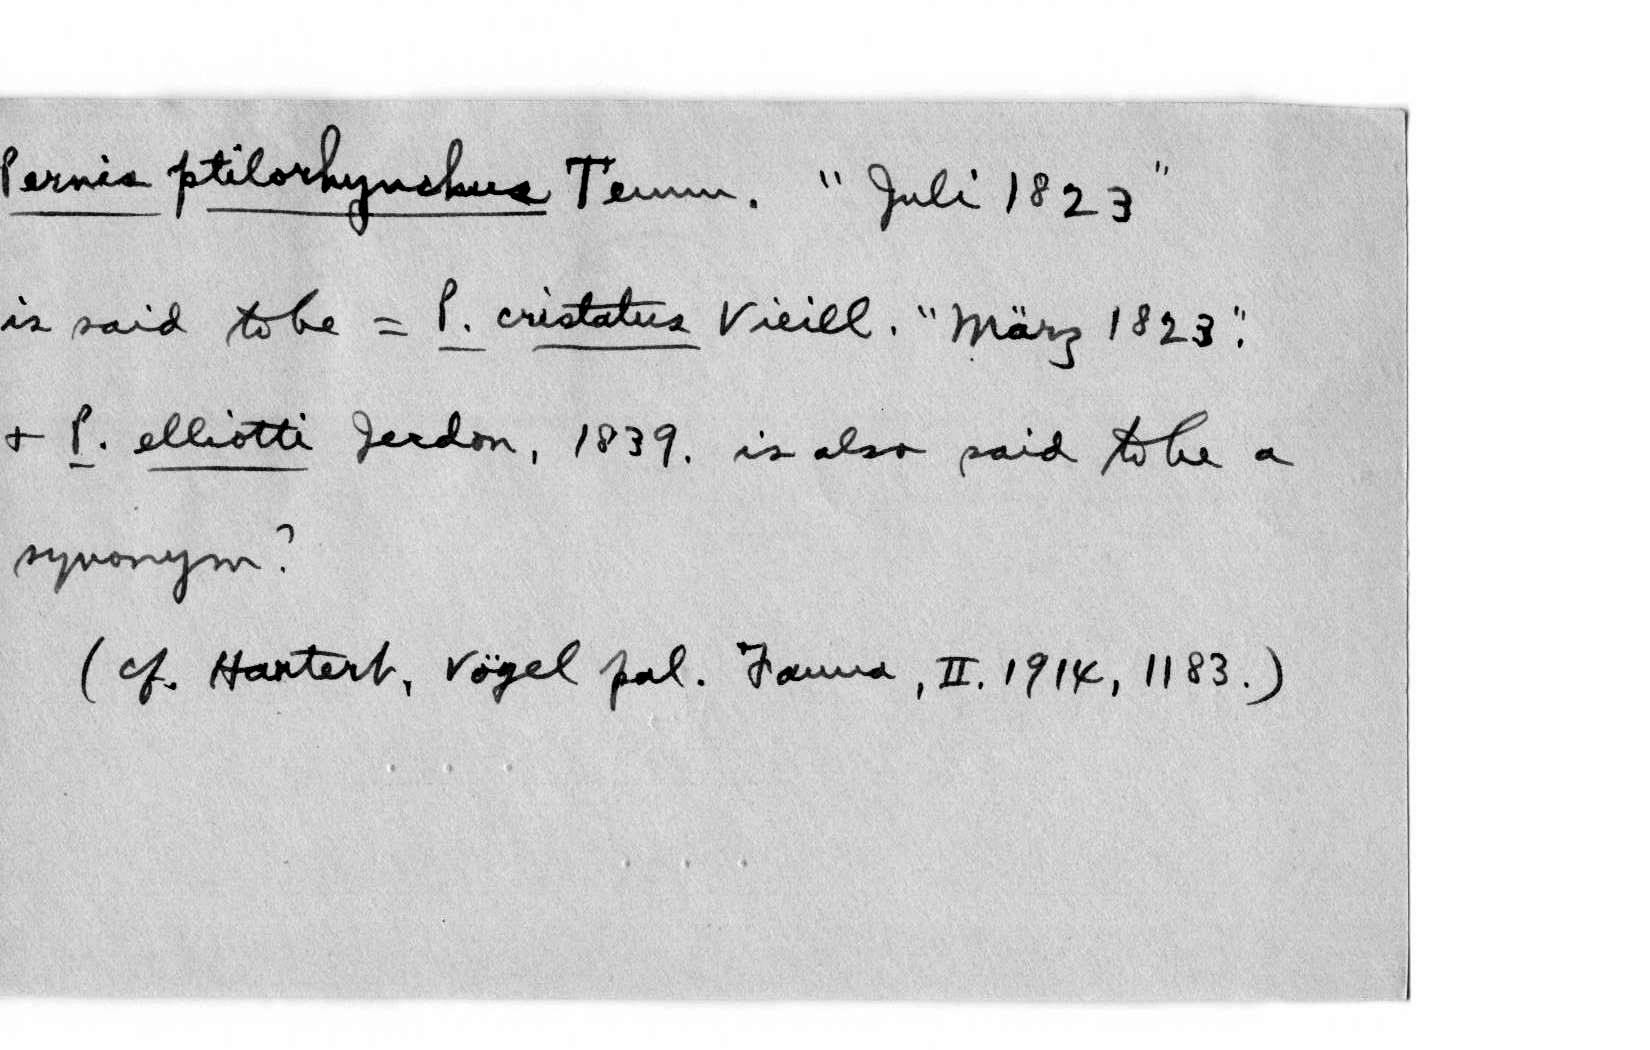 Pernis ptilorhynchus Temm. "Juli 1823"
is said to be = P. cristatus Vieill. "März 1823".
+ P. elliotti Jerdon, 1839. is also said to be a
synonym?
(cf. Hartert, Vögel pal. Fauna, II. 1914, 1183.)